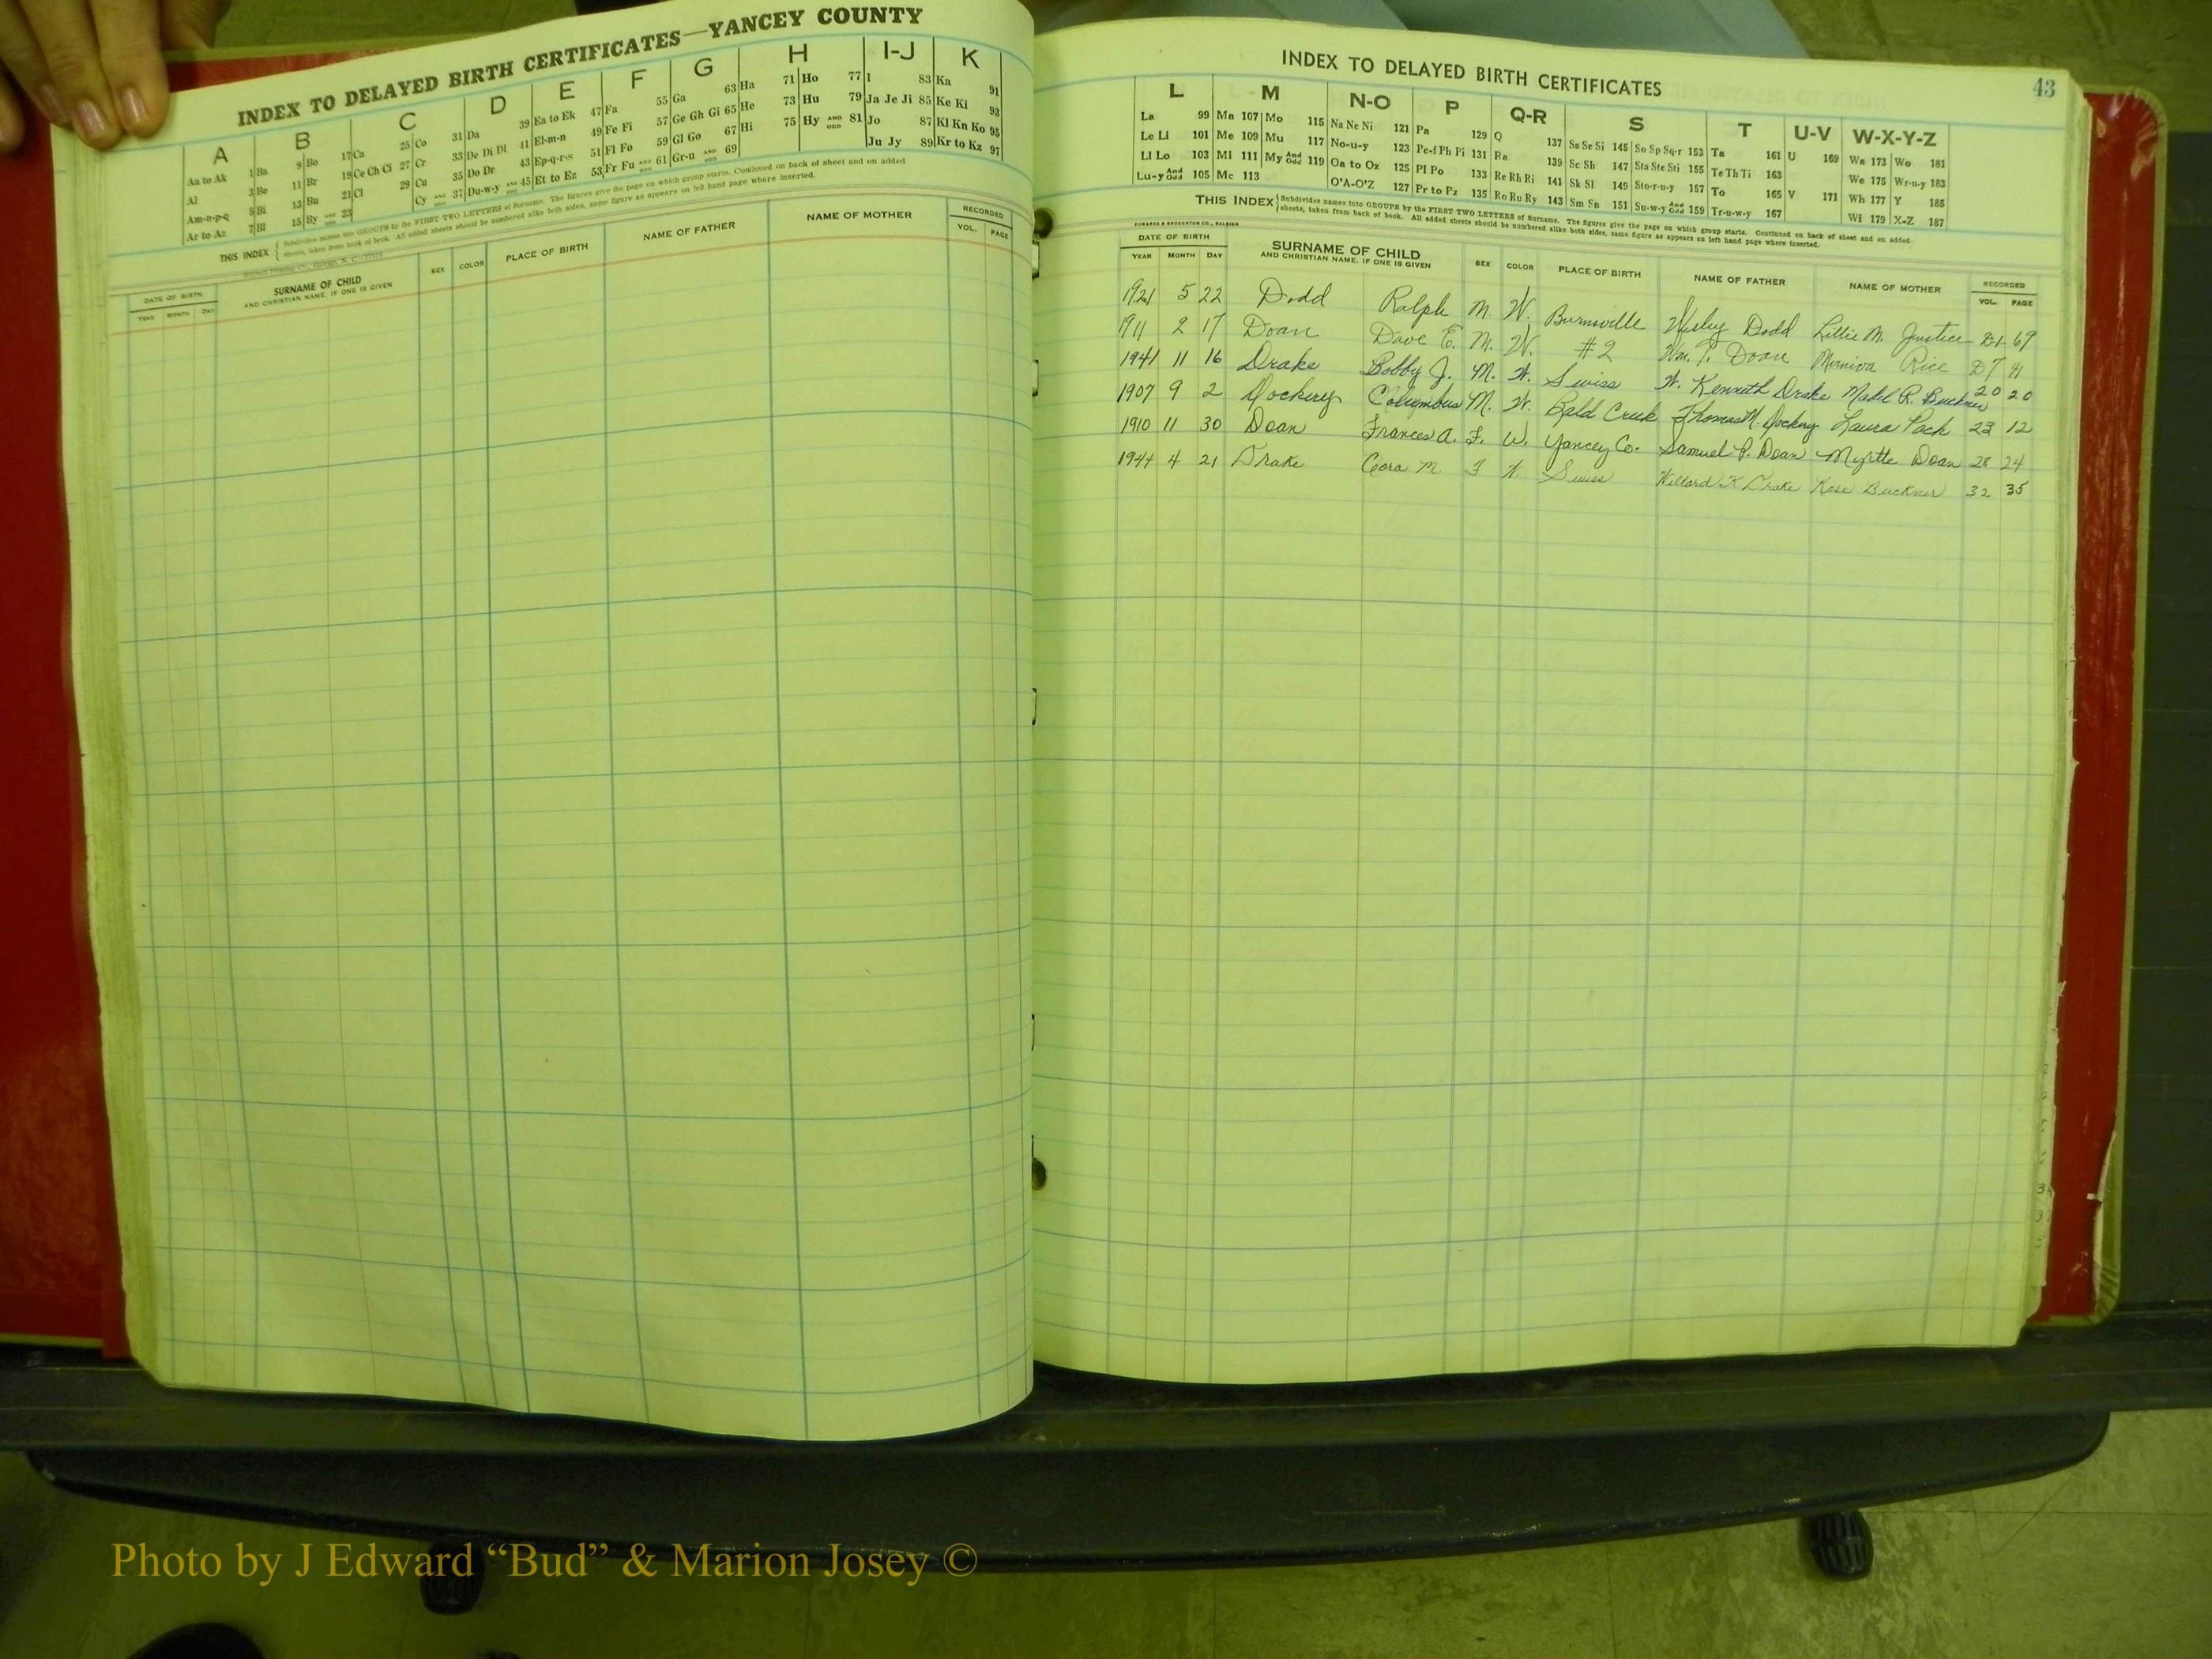 INDEX TO DELAYED BIRTH CERTIFICATES—YANCEY COUNTY
A B C D E F G H I-J K
Aa to Ak 1 Ba 9 Bo 17 Ca 25 Co 31 Da 39 Ea to Ek 47 Fa 55 Ga 63 Ha 71 Ho 77 I 83 Ka 91
Al 3 Be 11 Br 19 Ce Ch Ci 27 Cr 33 De Di Dl 41 El-m-n 49 Fe Fi 57 Ge Gh Gi 65 He 73 Hu 79 Ja Je Ji 85 Ke Ki 93
Am-n-p-q 5 Bi 13 Bu 21 Cl 29 Cu 35 Do Dr 43 Ep-q-r-s 51 Fl Fo 59 Gl Go 67 Hi 75 Hy AND ODD 81 Jo 87 Kl Kn Ko 95
Ar to Az 7 Bl 15 By AND ODD 23 Cy AND ODD 37 Du-w-y AND ODD 45 Et to Ez 53 Fr Fu AND ODD 61 Gr-u AND ODD 69 Ju Jy 89 Kr to Kz 97
THIS INDEX { Subdivides names into GROUPS by the FIRST TWO LETTERS of Surname. The figures give the page on which group starts. Continued on back of sheet and on added
sheets, taken from back of book. All added sheets should be numbered alike both sides, same figure as appears on left hand page where inserted.
DATE OF BIRTH SURNAME OF CHILD SEX COLOR PLACE OF BIRTH NAME OF FATHER NAME OF MOTHER RECORDED
YEAR MONTH DAY AND CHRISTIAN NAME, IF ONE IS GIVEN VOL. PAGE
INDEX TO DELAYED BIRTH CERTIFICATES
43
L M N-O P Q-R S T U-V W-X-Y-Z
La 99 Ma 107 Mo 115 Na Ne Ni 121 Pa 129 Q 137 Sa Se Si 145 So Sp Sq-r 153 Ta 161 U 169 Wa 173 Wo 181
Le Li 101 Me 109 Mu 117 No-u-y 123 Pe-f Ph Pi 131 Ra 139 Sc Sh 147 Sta Ste Sti 155 Te Th Ti 163 We 175 Wr-u-y 183
Ll Lo 103 Mi 111 My And Odd 119 Oa to Oz 125 Pl Po 133 Re Rh Ri 141 Sk Sl 149 Sto-r-u-y 157 To 165 V 171 Wh 177 Y 185
Lu-y And Odd 105 Mc 113 O'A-O'Z 127 Pr to Pz 135 Ro Ru Ry 143 Sm Sn 151 Su-w-y And Odd 159 Tr-u-w-y 167 Wi 179 X-Z 187
THIS INDEX { Subdivides names into GROUPS by the FIRST TWO LETTERS of Surname. The figures give the page on which group starts. Continued on back of sheet and on added
sheets, taken from back of book. All added sheets should be numbered alike both sides, same figure as appears on left hand page where inserted.
EDWARDS & BROUGHTON CO., RALEIGH
DATE OF BIRTH SURNAME OF CHILD SEX COLOR PLACE OF BIRTH NAME OF FATHER NAME OF MOTHER RECORDED
YEAR MONTH DAY AND CHRISTIAN NAME, IF ONE IS GIVEN VOL. PAGE
1921 5 22 Dodd Ralph M. W. Burnsville Wesley Dodd Lillie M. Justice D1- 69
1911 2 17 Doan Dave E. M. W. #2 Wm. T. Doan Rice D7 41
1941 11 16 Drake Bobby J. M. W. Swiss W. Kenneth Drake Mabel R. Buckner 20 20
1907 9 2 Dockery Columbus M. W. Bald Creek Thomas M. Dockery Laura Pack 23 12
1910 11 30 Doan Frances A. F. W. Yancey Co. Samuel P. Doan Myrtle Doan 28 24
1944 4 21 Drake Cora M. F W. Swiss Willard K Drake Rose Buckner 32 35
Photo by J Edward “Bud” & Marion Josey ©